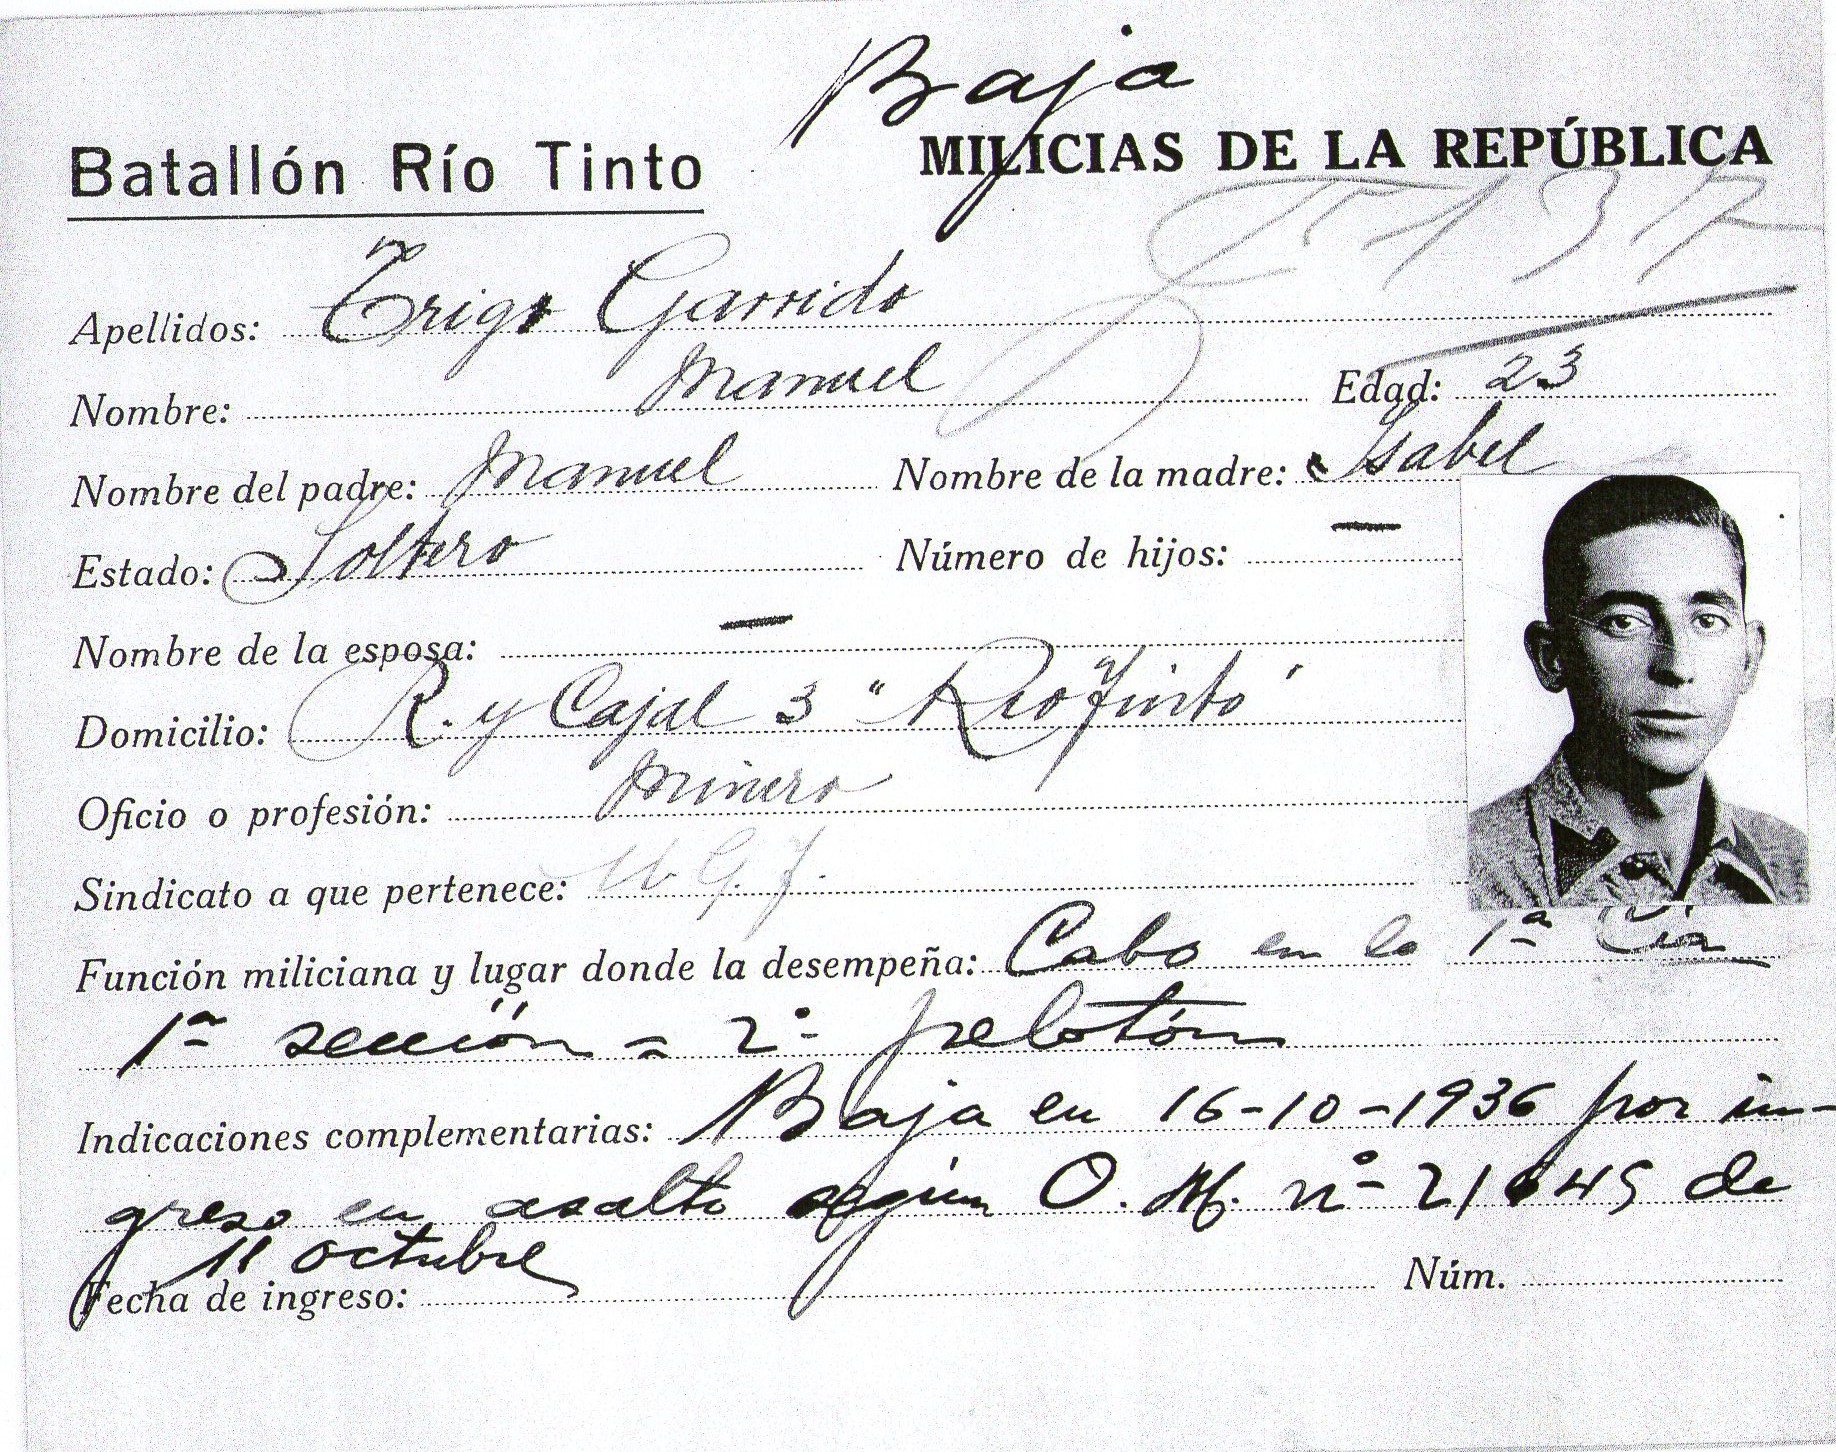 Baja
Batallón Río Tinto
MILICIAS DE LA REPÚBLICA
Apellidos: Trigo Garrido
Nombre: Manuel Edad: 23
Nombre del padre: Manuel Nombre de la madre: Isabel
Estado: Soltero Número de hijos: —
Nombre de la esposa: —
Domicilio: R. y Cajal 3 "Rio Tinto"
Oficio o profesión: Minero
Sindicato a que pertenece: U.G.T.
Función miliciana y lugar donde la desempeña: Cabo en la 1ª Cia
1ª sección = 2º pelotón
Indicaciones complementarias: Baja en 16-10-1936 por in-
greso en asalto según O. M. nº
de
11 octubre
Fecha de ingreso: Núm.